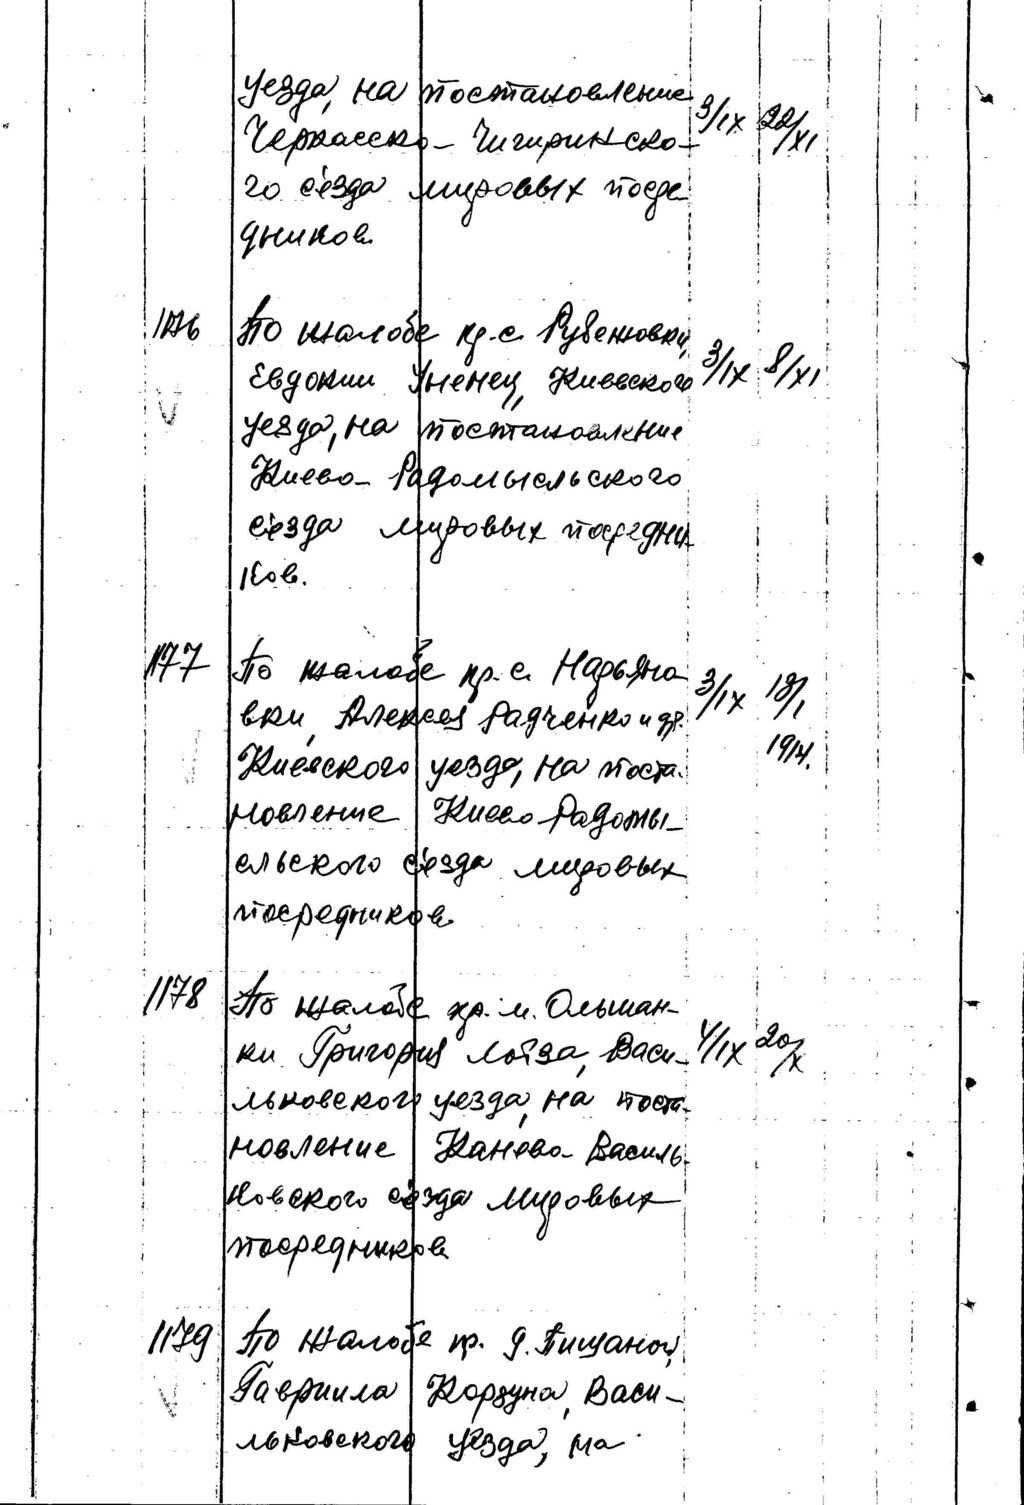 уезда, на постановление 3/IX 22/XI
Черкасско-Чигиринско-
го сьезда мировых посре
дников.
1176 По жалобе кр. с. Рубежовки,
Евдокии Уненец, Киевского 3/IX 8/XI
уезда, на постановление
Киево-Радомысльского
сьезда мировых посредни
ков.
1177 По жалобе кр. с. Марьяно
вки, Алексея Радченко и др. 3/IX 18/I
1914.
Киевского уезда, на поста-
новление Киево-Радомы-
сльского сьезда мировых
посредников.
1178 По жалобе кр. м. Ольшан-
ки Григория, Васи- 4/IX 20/X
льковского уезда, на поста-
новление Канево-Василь-
ковского сьезда мировых
посредников.
1179 По жалобе кр. д. Пищаной,
Гавриила Корзуна, Васи-
льковского уезда, на